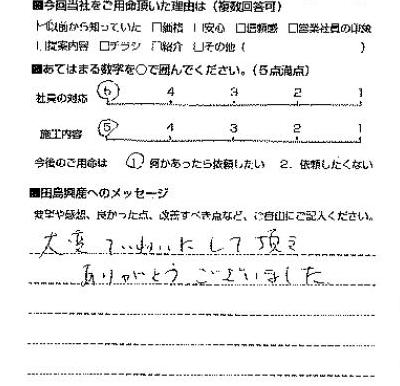 ■今回当社をご用命頂いた理由は(複数回答可)
☑以前から知っていた □価格 □安心 □信頼感 □営業社員の印象
□提案内容 □チラシ □紹介 □その他( )
■あてはまる数字を○で囲んでください。(5点満点)
社員の対応 5 4 3 2 1
施工内容 5 4 3 2 1
今後のご用命は 1. 何かあったら依頼したい 2. 依頼したくない
■田島興産へのメッセージ
要望や感想、良かった点、改善すべき点など、ご自由にご記入ください。
大変ていねいにして頂き
ありがとうございました